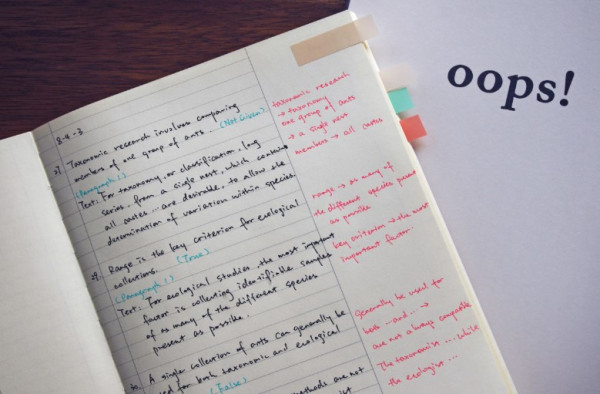 oops!
8-4-3
Taxonomic research involves comparing
members of one group of ants. (Not Given)
(Paragraph 1)
Text: For taxonomy, or classification, long
series, from a single nest, which contain
all castes ... are desirable, to allow the
determination of variation within species
Range is the key criterion for ecological
collections. (True)
(Paragraph 1)
Text: For ecological studies, the most important
factor is collecting identifiable samples
of as many of the different species
present as possible.
A single collection of ants can generally be
used for both taxonomic and ecological
(False)
methods are not
taxonomic research
→ taxonomy
one group of ants
→ a single nest
members → all castes
range → as many of
the different species present
as possible
key criterion → the most
important factor
Generally be used for
both ... and ... →
are not always compatible
The taxonomist ... while
the ecologist ...